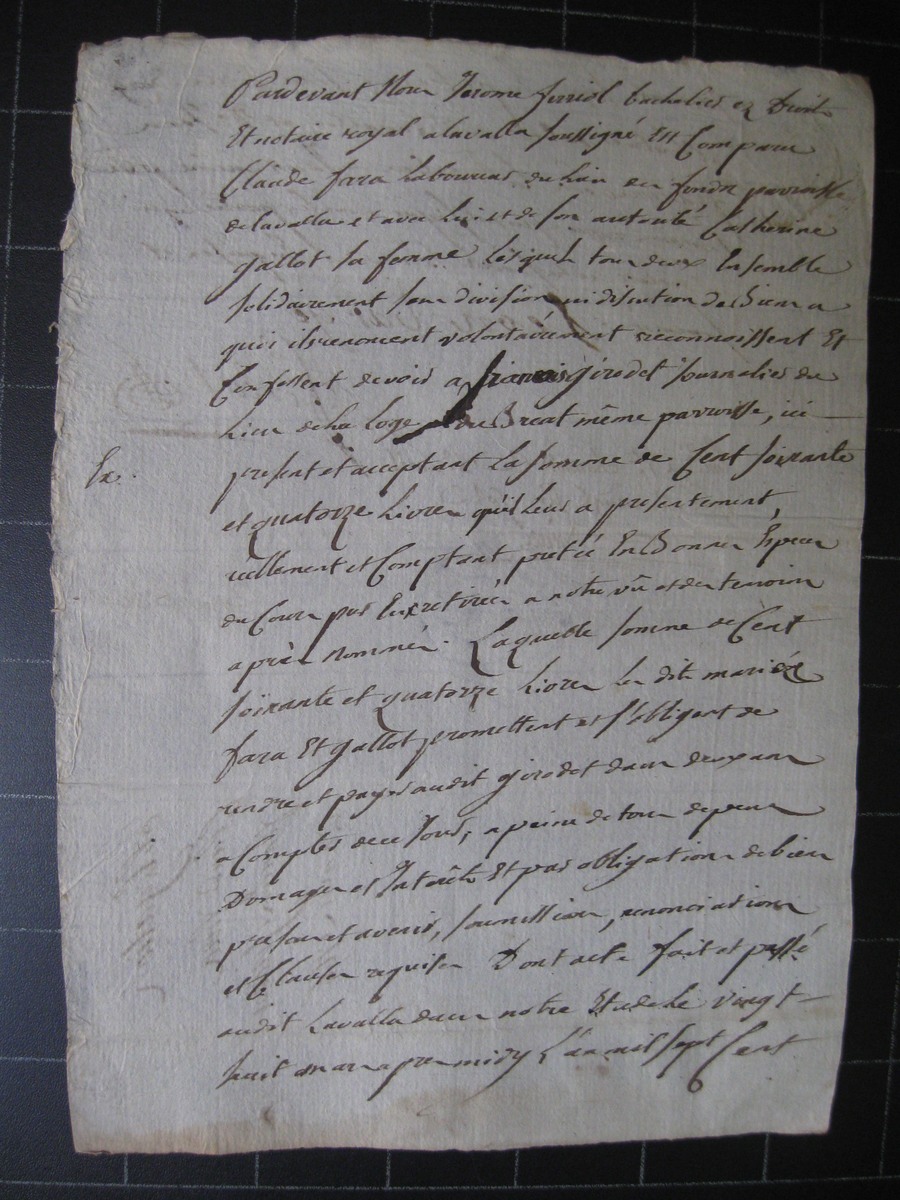 Pardevant Nous Jerome ferriol bachelier ez Droits
Et notaire royal a lavalla soussigné Est Comparu
Claude fara Laboureur du Lieu du fonds parroisse
de lavalla et avec lui et de son autorité Catherine
gallot sa femme Lesquels tous deux Ensemble
solidairement sans division ni discution de Biens a
quoi ils renoncent volontairement reconnoissent Et
Confessent devoir a francois girodet Journalier du
Lieu de la loge du Breat même parroisse, ici
Ex.
present et acceptant La somme de Cent soixante
et quatorze Livres qu'il leur a presentement
reellement et Comptant preté En Bonnes Especes
du Cours par Eux retirées a notre vû et des temoins
après nommés. Laquelle somme de Cent
soixante et quatorze Livres les dits mariés
fara Et gallot promettent et s'obligent de
rendre et payer audit girodet dans deux ans
a Compter de ce Jour, a peine de tous depens
Domages et Interêts Et par obligation de biens
presens et avenir, soumissions, renonciations
et Clauses requises Dont acte fait et passé
audit Lavalla dans notre Etude Le vingt
huit mars apres midy L'an mil sept Cent